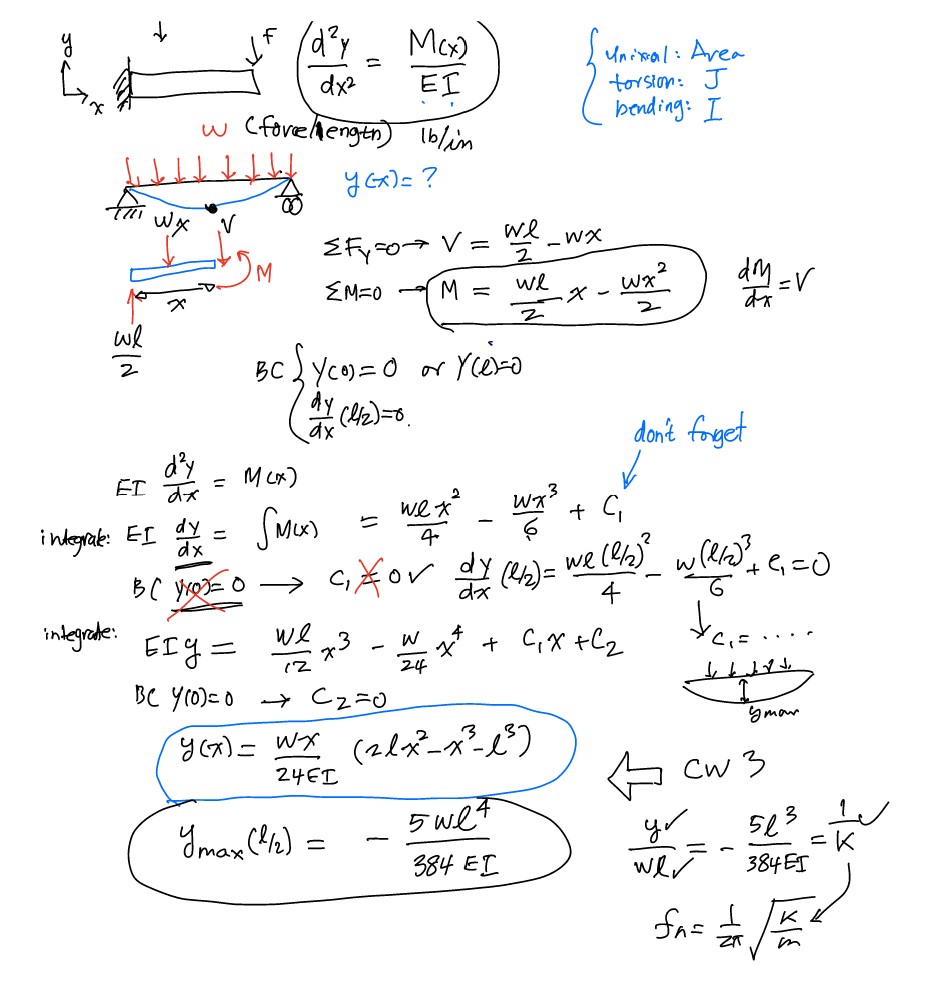 y
x
F
d²y/dx² = M(x)/EI
unixial: Area
torsion: J
bending: I
w (force/length) lb/in
y(x) = ?
wx
V
M
x
wl/2
ΣFy=0 → V = wl/2 - wx
ΣM=0 → M = wl/2 x - wx²/2
dM/dx = V
BC { y(0) = 0 or y(l)=0
dy/dx (l/2)=0.
don't forget
EI d²y/dx = M(x)
integrate: EI dy/dx = ∫M(x) = wlx²/4 - wx³/6 + C₁
BC y(0)= 0 → C₁ = 0 ✓ dy/dx (l/2) = wl(l/2)²/4 - w(l/2)³/6 + C₁ = 0
→ C₁ = ....
integrate: EIy = wl/12 x³ - w/24 x⁴ + C₁x + C₂
BC y(0)=0 → C₂=0
ymax
y(x) = wx/24EI (2lx² - x³ - l³)
⇐ CW 3
ymax(l/2) = - 5wl⁴/384 EI
y✓/wl✓ = - 5l³/384EI = 1/K ✓
fn = 1/2π √(K/m)